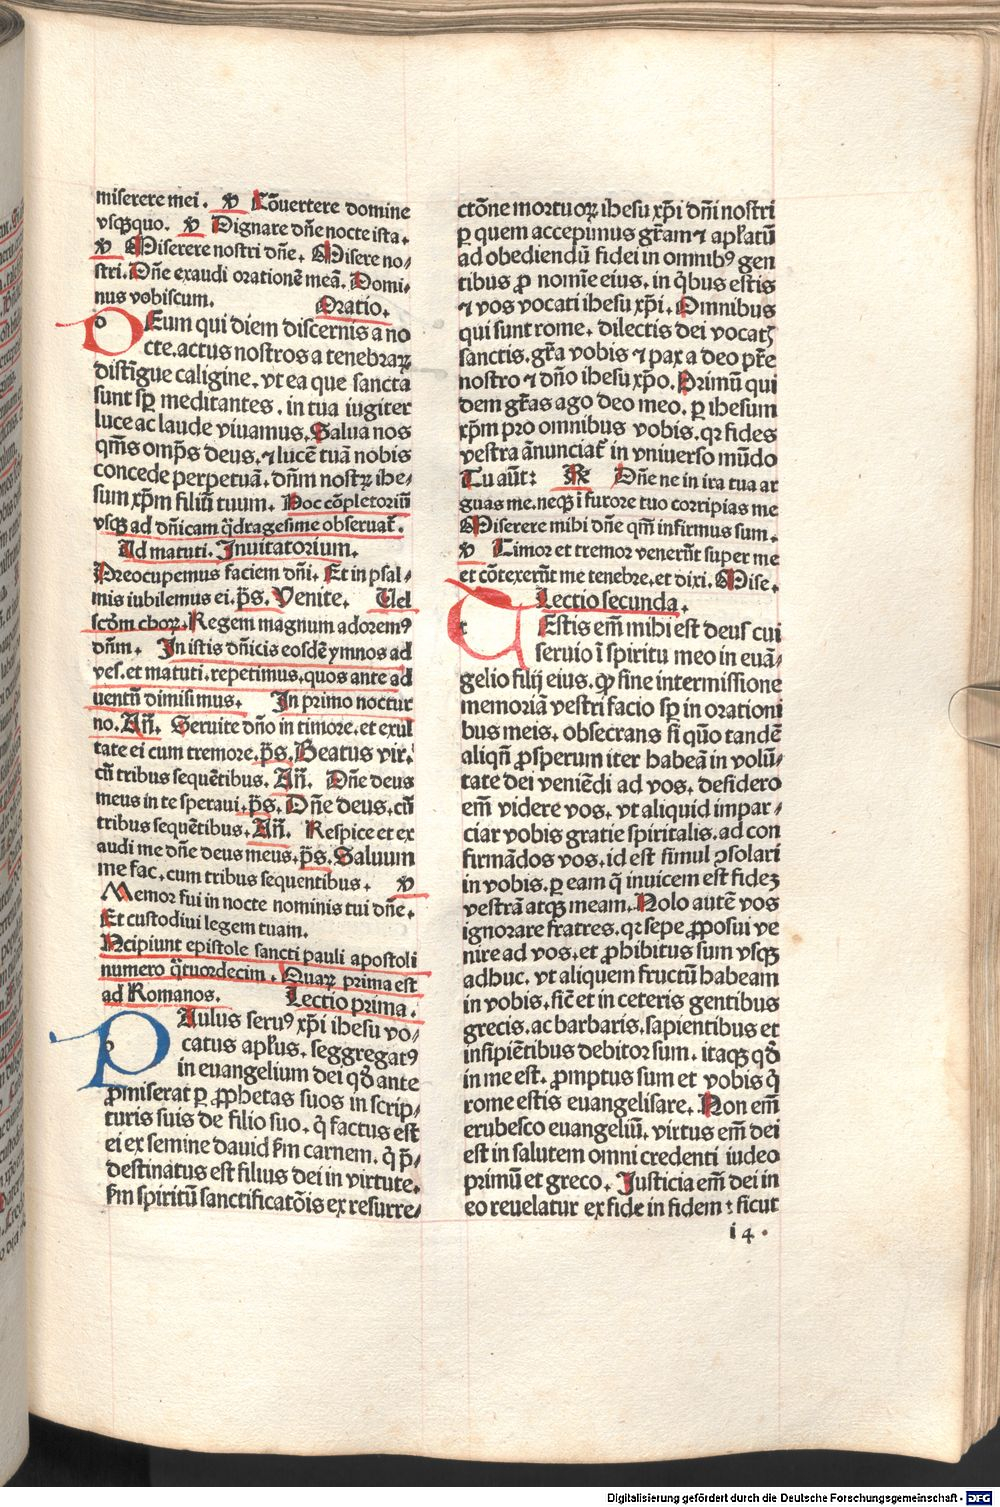 miserere mei. ℣ Cõuertere domine
vsq̃quo. ℣ Dignare dñe nocte ista.
℣ Miserere nostri dñe. Misere no⸗
stri. Dñe exaudi orationẽ meã. Domi⸗
nus vobiscum. Oratio.
DEum qui diem discernis a no
cte. actus nostros a tenebraꝝ
distĩgue caligine. vt ea que sancta
sunt sꝑ meditantes. in tua iugiter
luce ac laude viuamus. Salua nos
om̃s omp̃s deus. ⁊ lucẽ tuã nobis
concede perpetuã. dñm nostꝝ ihe⸗
sum xp̃m filiũ tuum. Hoc cõpletoriũ
vsq̃ ad dñicam q̃dragesime obseruat̃.
Ad matuti. Inuitatorium.
Preocupemus faciem dñi. Et in psal⸗
mis iubilemus ei. p̃s. Venite. Uel
scđm choꝝ. Regem magnum adoremꝰ
dñm. In istis dñicis eosdẽ ymnos ad
ves. et matuti. repetimus. quos ante ad
uentũ dimisimus. In primo noctur
no. Añ. Seruite dño in timore. et exul
tate ei cum tremore. p̃s. Beatus vir.
cũ tribus sequẽtibus. Añ. Dñe deus
meus in te speraui. p̃s. Dñe deus. cũ
tribus sequẽtibus. Añ. Respice et ex
audi me dñe deus meus. p̃s. Saluum
me fac. cum tribus sequentibus. ℣
Memor fui in nocte nominis tui dñe.
Et custodiui legem tuam.
INcipiunt epistole sancti pauli apostoli
numero q̃tuordecim. Quaꝝ prima est
ad Romanos. Lectio prima.
PAulus seruꝰ xp̃i ihesu vo⸗
catus apl̃us. seggregatꝰ
in euangelium dei qđ ante
ꝓmiserat ꝑ ꝓphetas suos in scrip⸗
turis suis de filio suo. q̃ factus est
ei ex semine dauid s̃m carnem. q̃ p̃⸗
destinatus est filius dei in virtute.
s̃m spiritũ sanctificatõis ex resurre⸗
ctõne mortuoꝝ ihesu xp̃i dñi nostri
ꝑ quem accepimus gr̃am ⁊ apl̃atũ
ad obediendũ fidei in omnibꝰ gen
tibus ꝓ nomĩe eius. in q̃bus estis
⁊ vos vocati ihesu xp̃i. Omnibus
qui sunt rome. dilectis dei vocatꝭ
sanctis. gr̃a vobis ⁊ pax a deo pr̃e
nostro ⁊ dño ihesu xp̃o. Primũ qui
dem gr̃as ago deo meo. ꝑ ihesum
xp̃m pro omnibus vobis. qꝛ fides
vestra ãnunciat̃ in vniuerso mũdo
Tu aũt: ℟ Dñe ne in ira tua ar
guas me. neq̃ ĩ furore tuo corripias me
Miserere mihi dñe qm̃ infirmus sum.
℣ Timor et tremor venerũt super me
et cõtexerũt me tenebre. et dixi. Mise.
Lectio secunda.
TEstis em̃ mihi est deus cui
seruio ĩ spiritu meo in euã⸗
gelio filij eius. ꝙ sine intermissione
memoriã vestri facio sꝑ in orationi
bus meis. obsecrans si quo tandẽ
aliqñ ꝓsperum iter habeã in volũ⸗
tate dei veniẽdi ad vos. desidero
em̃ videre vos. vt aliquid impar⸗
ciar vobis gratie spiritalis. ad con
firmãdos vos. id est simul ꝯsolari
in vobis. ꝑ eam q̃ inuicem est fidez
vestrã atq̃ meam. Nolo autẽ vos
ignorare fratres. qꝛ sepe ꝓposui ve
nire ad vos. et ꝓhibitus sum vsq̃
adhuc. vt aliquem fructũ habeam
in vobis. sic̃ et in ceteris gentibus
grecis. ac barbaris. sapientibus et
insipiẽtibus debitor sum. itaq̃ qđ
in me est. ꝓmptus sum et vobis q̃
rome estis euangelisare. Non em̃
erubesco euangeliũ. virtus em̃ dei
est in salutem omni credenti iudeo
primũ et greco. Iusticia em̃ dei in
eo reuelatur ex fide in fidem: sicut
i 4.
Digitalisierung gefördert durch die Deutsche Forschungsgemeinschaft - DFG